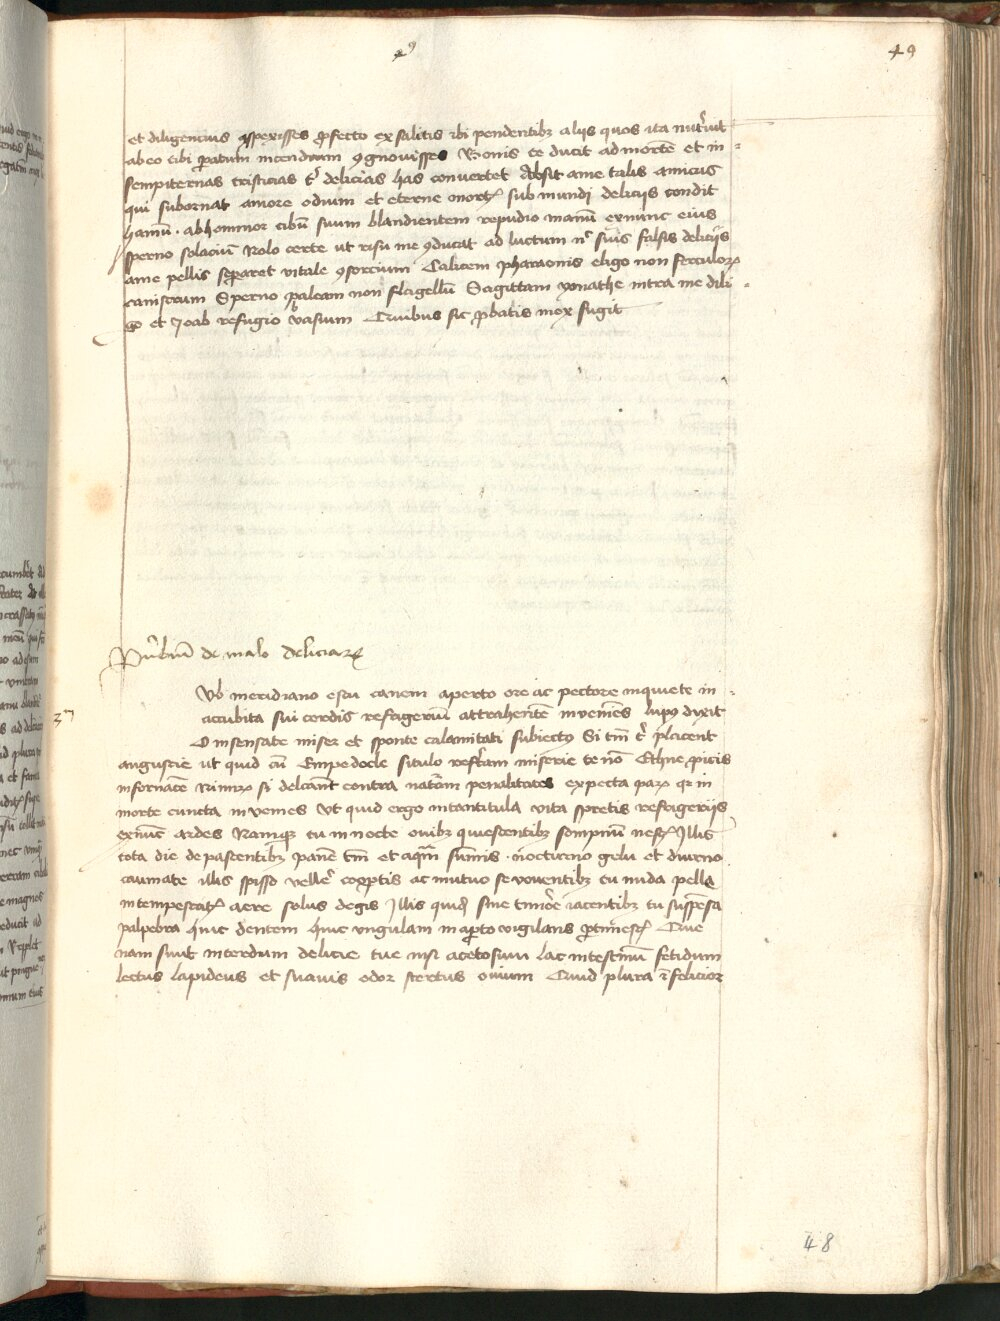 49
49
et diligencius ꝯspexisses ꝓfecto ex salitis ibi pendentibꝫ aliis quos ita nutͥuit
ab eo tibi ꝑatum incendium ꝯgnouisses Bonis te ducit ad morte et in
sempiternas tristicias tͥ delicias has conuertet Absit a me talis amicus
qui subornat amore odium et eterne mortꝭ sub mundi deliciis condit
hamū · abhominor cibū suum blandientem repudio manū exnunc eius
sperno solaciū Nolo certe ut risu me ꝯducat ad luctum nͥ suis falsis deliciis
a me pellis seꝑaret vitale ꝯsorcium Calicem pharaonis eligo non ferculoꝝ
canistrum Sperno paleam non flagellū Sagittam yonathe intra me dili
go et Joab refugio basium Quibus sic ꝓbatis mox fugit
Puͥbiū de malo deliciaꝝ
Vb meridiano estu canem aperto ore ac pectore inquiete in
accubita sui cordis refrigeriū attrahentē inueniēs lupꝰ dixit
3ᵐ
O insensate miser et sponte calamitati subiectꝰ Si tm̄ tͥ placent
angustie ut quid cū Empedocle situlo miserie te nō Ethne picis
in fornacē si delcānt contra natāꝫ penalitates expecta qꝛ in
morte cuncta inuenies Vt quid ergo in tantitula vita spretis refrigeriis
exnūc ardes Namqꝫ tu in nocte ouibꝫ quiescentibꝫ sompnū nescꝭ Illis
tota die depascentibꝫ panē tm̄ et aquā sumis · nocturno gelu et diurno
caumate illis spisso vellͤe coopertis ac mutuo se vouentibꝫ tu nuda pelle
intempestatꝭ aere solus degis Illis quidē sine timōe iacentibꝫ tu suspēsa
palpebra huic dentem huic vngulam in aperto vigilans ꝑtimescꝭ Que
nam sunt interdum delicie tue nisi acetosum lac intestinū fetidum
lectus lapideus et suauis odor stercus ouium Quid plura
felicior
48